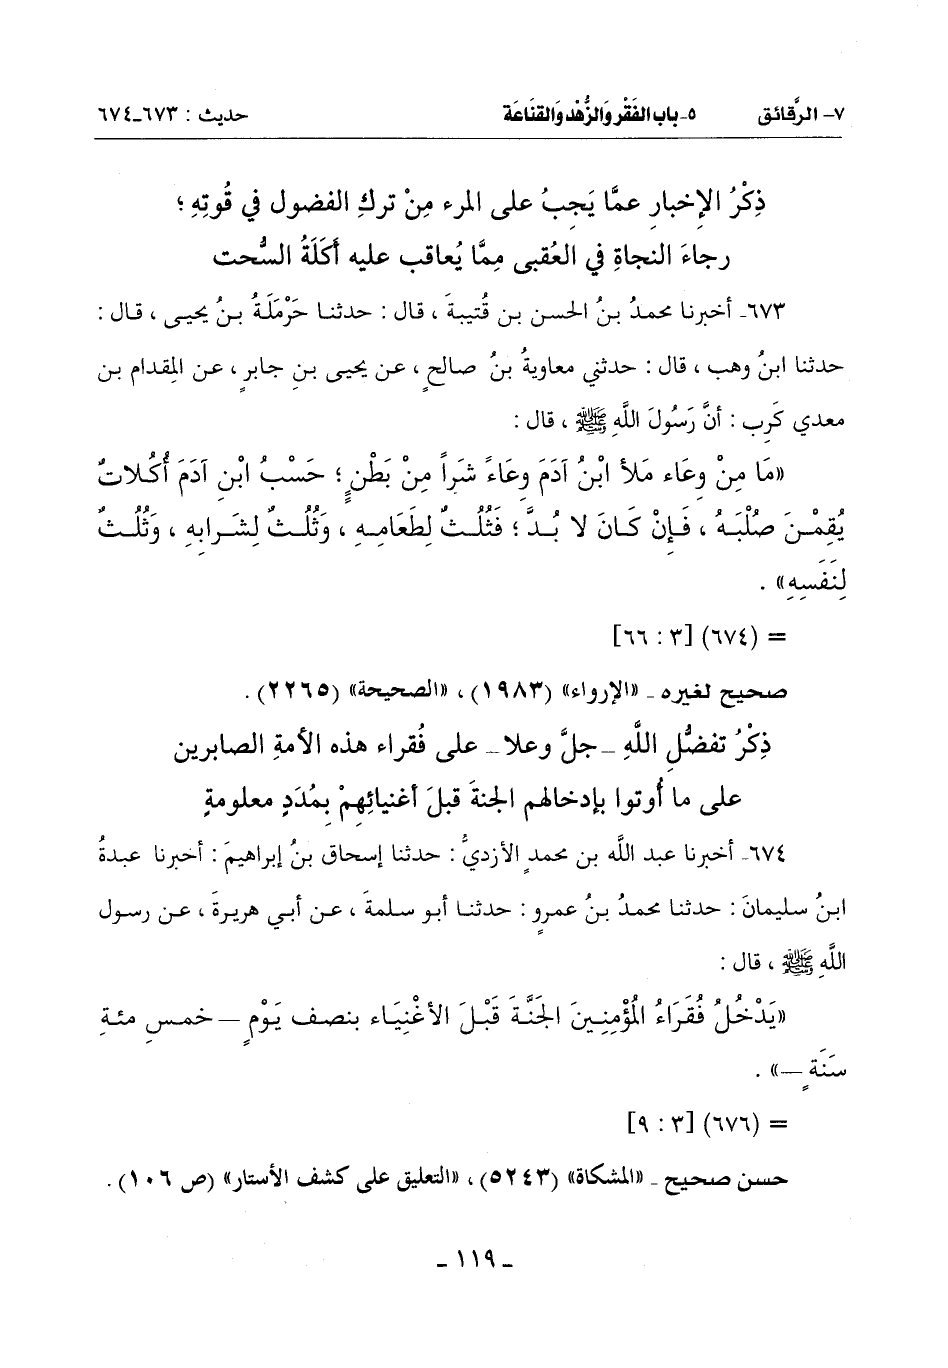 ٧- الرَّقائق ٥- باب الفَقْر والزُّهْد والقنَاعَة حديث : ٦٧٣-٦٧٤
ذِكْرُ الإخبارِ عمَّا يَجِبُ على المرء مِنْ تركِ الفضول في قُوتِهِ ؛
رجاءَ النجاةِ في العُقبى مِمَّا يُعاقب عليه أَكَلَةُ السُّحت
٦٧٣- أخبرنا محمدُ بنُ الحسن بن قُتيبةَ ، قال : حدثنا حَرْمَلَةُ بنُ يحيى ، قال :
حدثنا ابنُ وهب ، قال : حدثني معاويةُ بنُ صالحٍ ، عن يحيى بنِ جابرٍ ، عن المِقدام بن
معدي كَرِب : أنَّ رَسُولَ اللَّهِ ﷺ ، قال :
«مَا مِنْ وعَاء مَلأ ابْنُ آدَمَ وعَاءً شَراً مِنْ بَطْنٍ ؛ حَسْبُ ابْنِ آدَمَ أُكُلاتٌ
يُقِمْنَ صُلْبَهُ ، فَإِنْ كَانَ لا بُدَّ ؛ فَثُلُثٌ لِطَعَامِهِ ، وَثُلُثٌ لِشَرابِهِ ، وَثُلُثٌ
لِنَفَسِهِ» .
= (٦٧٤) [٣ : ٦٦]
صحيح لغيره ـ «الإرواء» (١٩٨٣) ، «الصحيحة» (٢٢٦٥) .
ذِكْرُ تفضُّلِ اللَّهِ ـ جلَّ وعلا ـ على فُقراء هذه الأمةِ الصابرين
على ما أُوتوا بإدخالهم الجنةَ قبلَ أغنيائِهِمْ بمُدَدٍ معلومةٍ
٦٧٤- أخبرنا عبد اللَّه بن محمدٍ الأزديُّ : حدثنا إسحاق بنُ إبراهيمَ : أخبرنا عبدةُ
ابنُ سليمانَ : حدثنا محمدُ بنُ عمرو : حدثنا أبو سلمةَ ، عن أبي هريرةَ ، عن رسول
اللَّهِ ﷺ ، قال :
«يَدْخُلُ فُقَرَاءُ المُؤْمِنِينَ الجَنَّةَ قَبْلَ الأغْنِيَاء بنصف يَوْمٍ – خمسِ مئةِ
سَنَةٍ –» .
= (٦٧٦) [٣ : ٩]
حسن صحيح ـ «المشكاة» (٥٢٤٣) ، «التعليق على كشف الأستار» (ص ١٠٦) .
- ١١٩ -